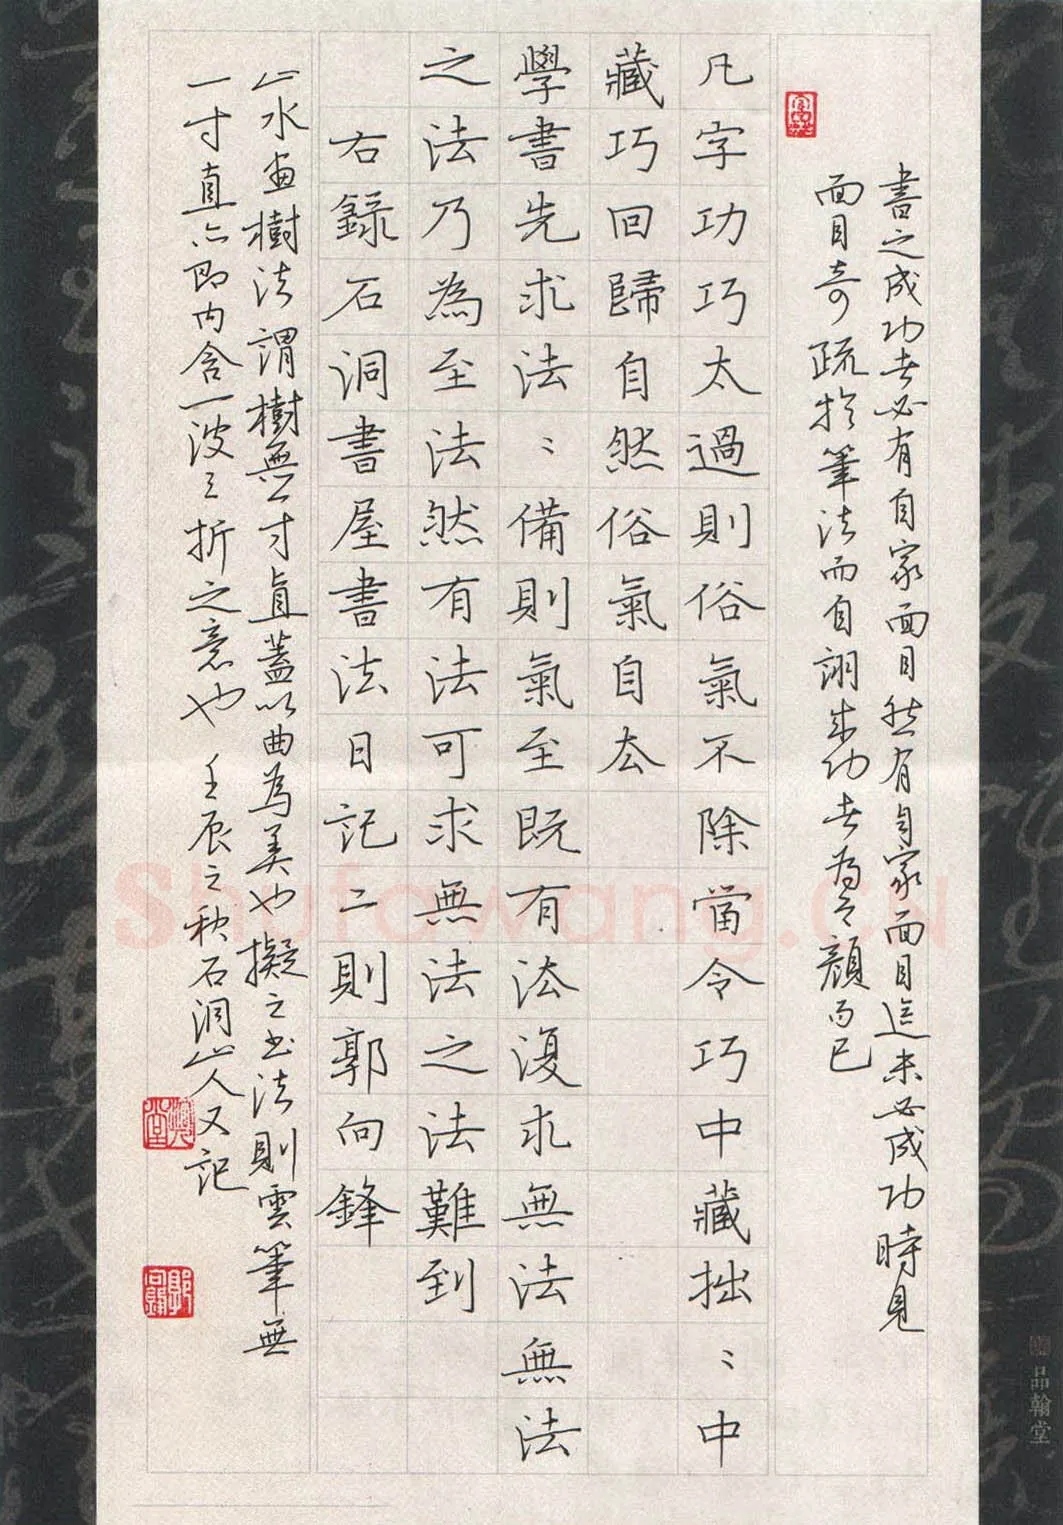 書之成功者必有自家面目然有自家面目遠未必成功時見
面目奇疏於筆法而自詡成功者為之顏而已
凡字功巧太過則俗氣不除當令巧中藏拙〻中
藏巧回歸自然俗氣自去
學書先求法〻備則氣至既有法復求無法無法
之法乃為至法然有法可求無法之法難到
右錄石洞書屋書法日記二則郭向鋒
山水畫樹法謂樹無一寸直蓋以曲為美也擬之書法則雲筆無
一寸直亦即內含一波三折之意也 壬辰之秋石洞山人又記
品翰堂
Shufawang.CN